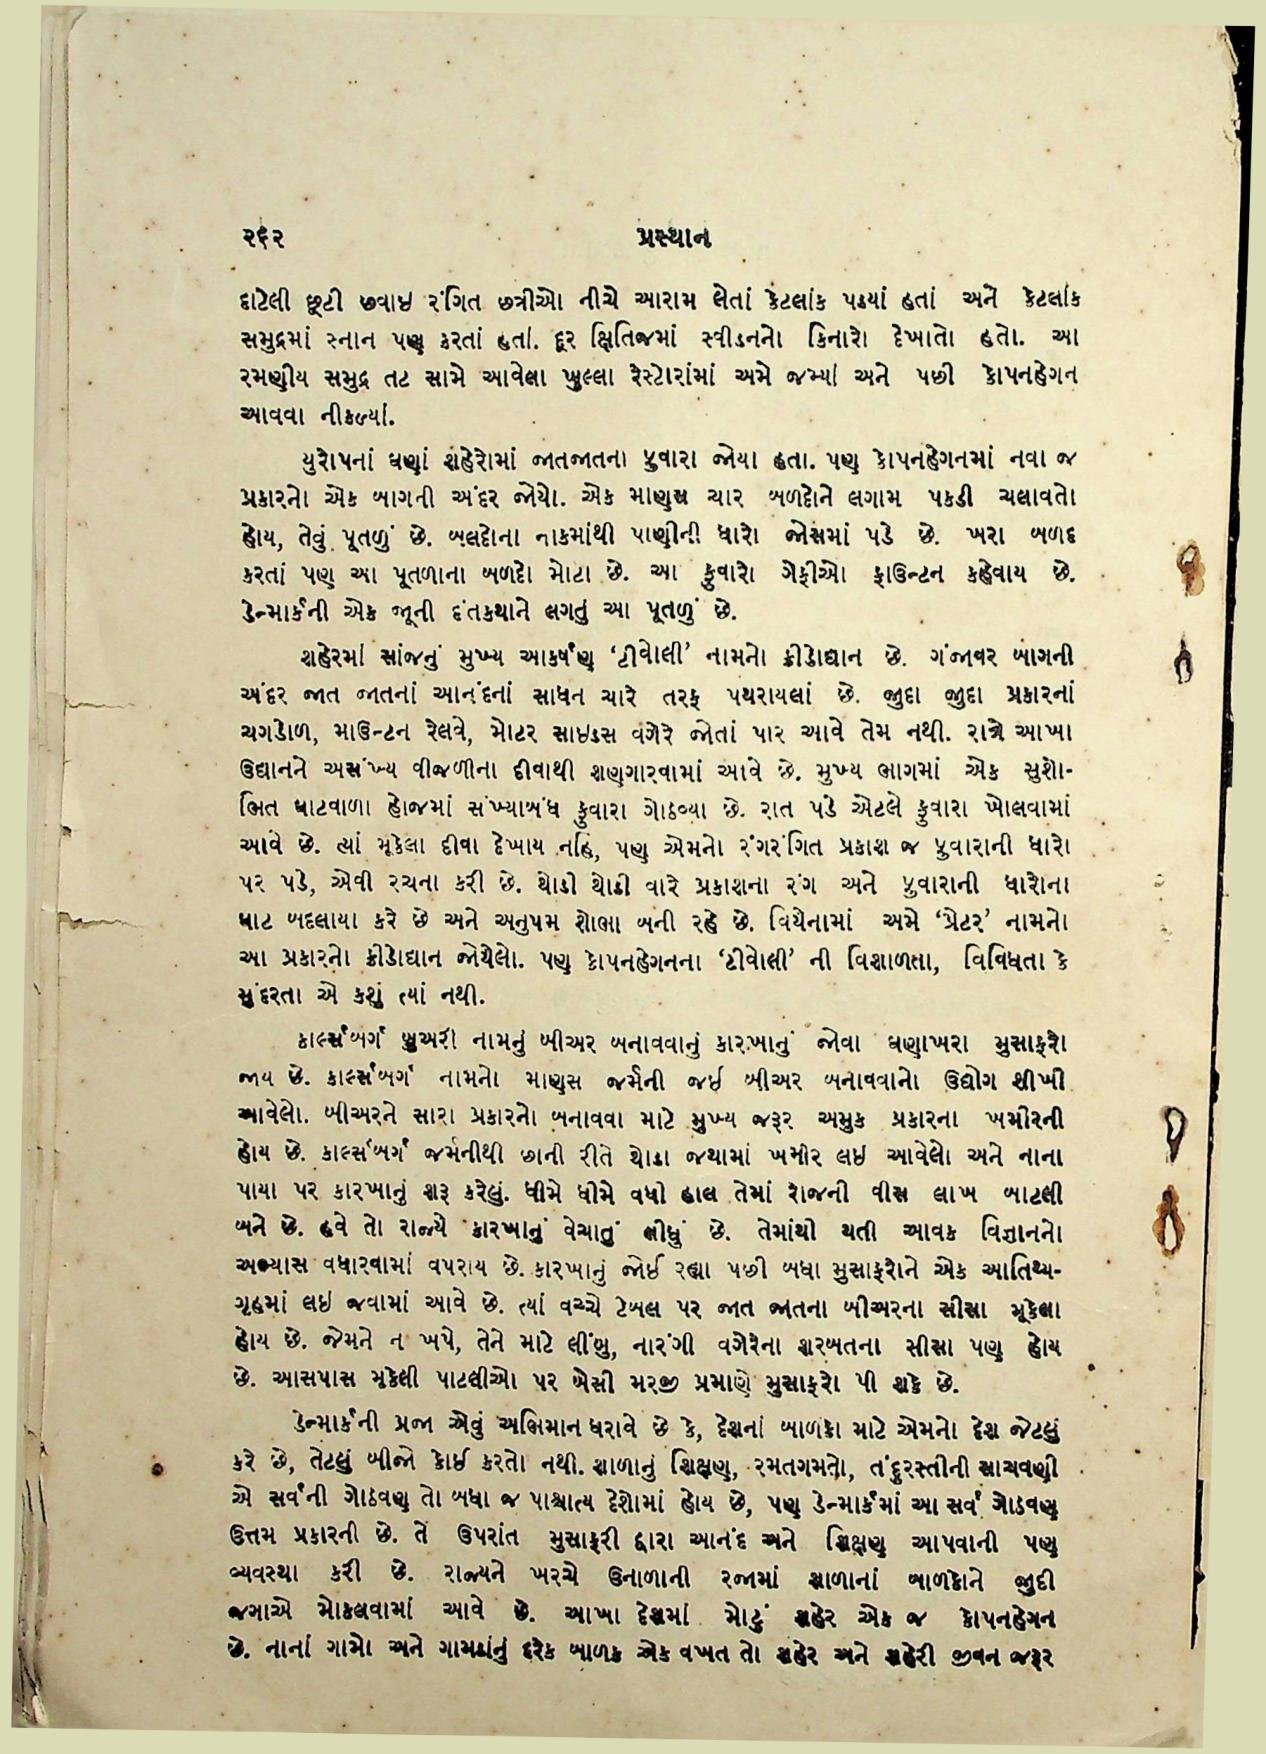 ૨૬૨ પ્રસ્થાન
દાટેલી છૂટી છવાઇ રંગિત છત્રીઓ નીચે આરામ લેતાં કેટલાંક પડયાં હતાં અને કેટલાંક
સમુદ્રમાં સ્નાન પણ કરતાં હતાં. દૂર ક્ષિતિજમાં સ્વીડનનો કિનારો દેખાતો હતો. આ
રમણીય સમુદ્ર તટ સામે આવેલા ખુલ્લા રેસ્ટોરાંમાં અમે જમ્યાં અને પછી કોપનહેગન
આવવા નીકળ્યાં.
યુરોપનાં ઘણાં શહેરોમાં જાતજાતના ફુવારા જોયા હતા. પણ કોપનહેગનમાં નવા જ
પ્રકારનો એક બાગની અંદર જોયો. એક માણસ ચાર બળદોને લગામ પકડી ચલાવતો
હોય, તેવું પૂતળું છે. બલદોના નાકમાંથી પાણીની ધારો જોસમાં પડે છે. ખરા બળદ
કરતાં પણ આ પૂતળાના બળદો મોટા છે. આ ફુવારો ગેફીઓ ફાઉન્ટન કહેવાય છે.
ડેન્માર્કની એક જૂની દંતકથાને લગતું આ પૂતળું છે.
શહેરમાં સાંજનું મુખ્ય આકર્ષણ ‘ટીવોલી’ નામનો ક્રીડોદ્યાન છે. ગંજાવર બાગની
અંદર જાત જાતનાં આનંદનાં સાધન ચારે તરફ પથરાયલાં છે. જુદા જુદા પ્રકારનાં
ચગડોળ, માઉન્ટન રેલવે, મોટર સાઇડસ વગેરે જોતાં પાર આવે તેમ નથી. રાત્રે આખા
ઉદ્યાનને અસંખ્ય વીજળીના દીવાથી શણગારવામાં આવે છે. મુખ્ય ભાગમાં એક સુશો-
ભિત ઘાટવાળા હોજમાં સંખ્યાબંધ ફુવારા ગોઠવ્યા છે. રાત પડે એટલે ફુવારા ખોલવામાં
આવે છે. ત્યાં મૂકેલા દીવા દેખાય નહિ, પણ એમનો રંગરંગિત પ્રકાશ જ ફુવારાની ધારો
પર પડે, એવી રચના કરી છે. થોડી થોડી વારે પ્રકાશના રંગ અને ફુવારાની ધારોના
ઘાટ બદલાયા કરે છે અને અનુપમ શોભા બની રહે છે. વિયેનામાં અમે ‘પ્રેટર’ નામનો
આ પ્રકારનો ક્રીડોદ્યાન જોયેલો. પણ કોપનહેગનના ‘ટીવોલી’ ની વિશાળતા, વિવિધતા કે
સુંદરતા એ કશું ત્યાં નથી.
કાર્લ્સબર્ગ બ્રુઅરી નામનું બીઅર બનાવવાનું કારખાનું જોવા ઘણાખરા મુસાફરો
જાય છે. કાર્લ્સબર્ગ નામનો માણસ જર્મની જઇ બીઅર બનાવવાનો ઉદ્યોગ શીખી
આવેલો. બીઅરને સારા પ્રકારનો બનાવવા માટે મુખ્ય જરૂર અમુક પ્રકારના ખમીરની
હોય છે. કાર્લ્સબર્ગ જર્મનીથી છાની રીતે થોડા જથામાં ખમીર લઇ આવેલો અને નાના
પાયા પર કારખાનું શરૂ કરેલું. ધીમે ધીમે વધી હાલ તેમાં રોજની વીસ લાખ બાટલી
બને છે. હવે તો રાજ્યે કારખાનું વેચાતું લીધું છે. તેમાંથી થતી આવક વિજ્ઞાનનો
અભ્યાસ વધારવામાં વપરાય છે. કારખાનું જોઈ રહ્યા પછી બધા મુસાફરોને એક આતિથ્ય-
ગૃહમાં લઇ જવામાં આવે છે. ત્યાં વચ્ચે ટેબલ પર જાત જાતના બીઅરના સીસા મૂકેલા
હોય છે. જેમને ન ખપે, તેને માટે લીંબુ, નારંગી વગેરેના શરબતના સીસા પણ હોય
છે. આસપાસ મૂકેલી પાટલીઓ પર બેસી મરજી પ્રમાણે મુસાફરો પી શકે છે.
ડેન્માર્કની પ્રજા એવું અભિમાન ધરાવે છે કે, દેશનાં બાળકો માટે એમનો દેશ જેટલું
કરે છે, તેટલું બીજો કોઈ કરતો નથી. શાળાનું શિક્ષણ, રમતગમતો, તંદુરસ્તીની સાચવણી
એ સર્વની ગોઠવણ તો બધા જ પાશ્ચાત્ય દેશોમાં હોય છે, પણ ડેન્માર્કમાં આ સર્વ ગોઠવણ
ઉત્તમ પ્રકારની છે. તે ઉપરાંત મુસાફરી દ્વારા આનંદ અને શિક્ષણ આપવાની પણ
વ્યવસ્થા કરી છે. રાજ્યને ખરચે ઉનાળાની રજામાં શાળાનાં બાળકોને જુદી
જગાએ મોકલવામાં આવે છે. આખા દેશમાં મોટું શહેર એક જ કોપનહેગન
છે. નાનાં ગામો અને ગામડાંનું દરેક બાળક એક વખત તો શહેર અને શહેરી જીવન જરૂર